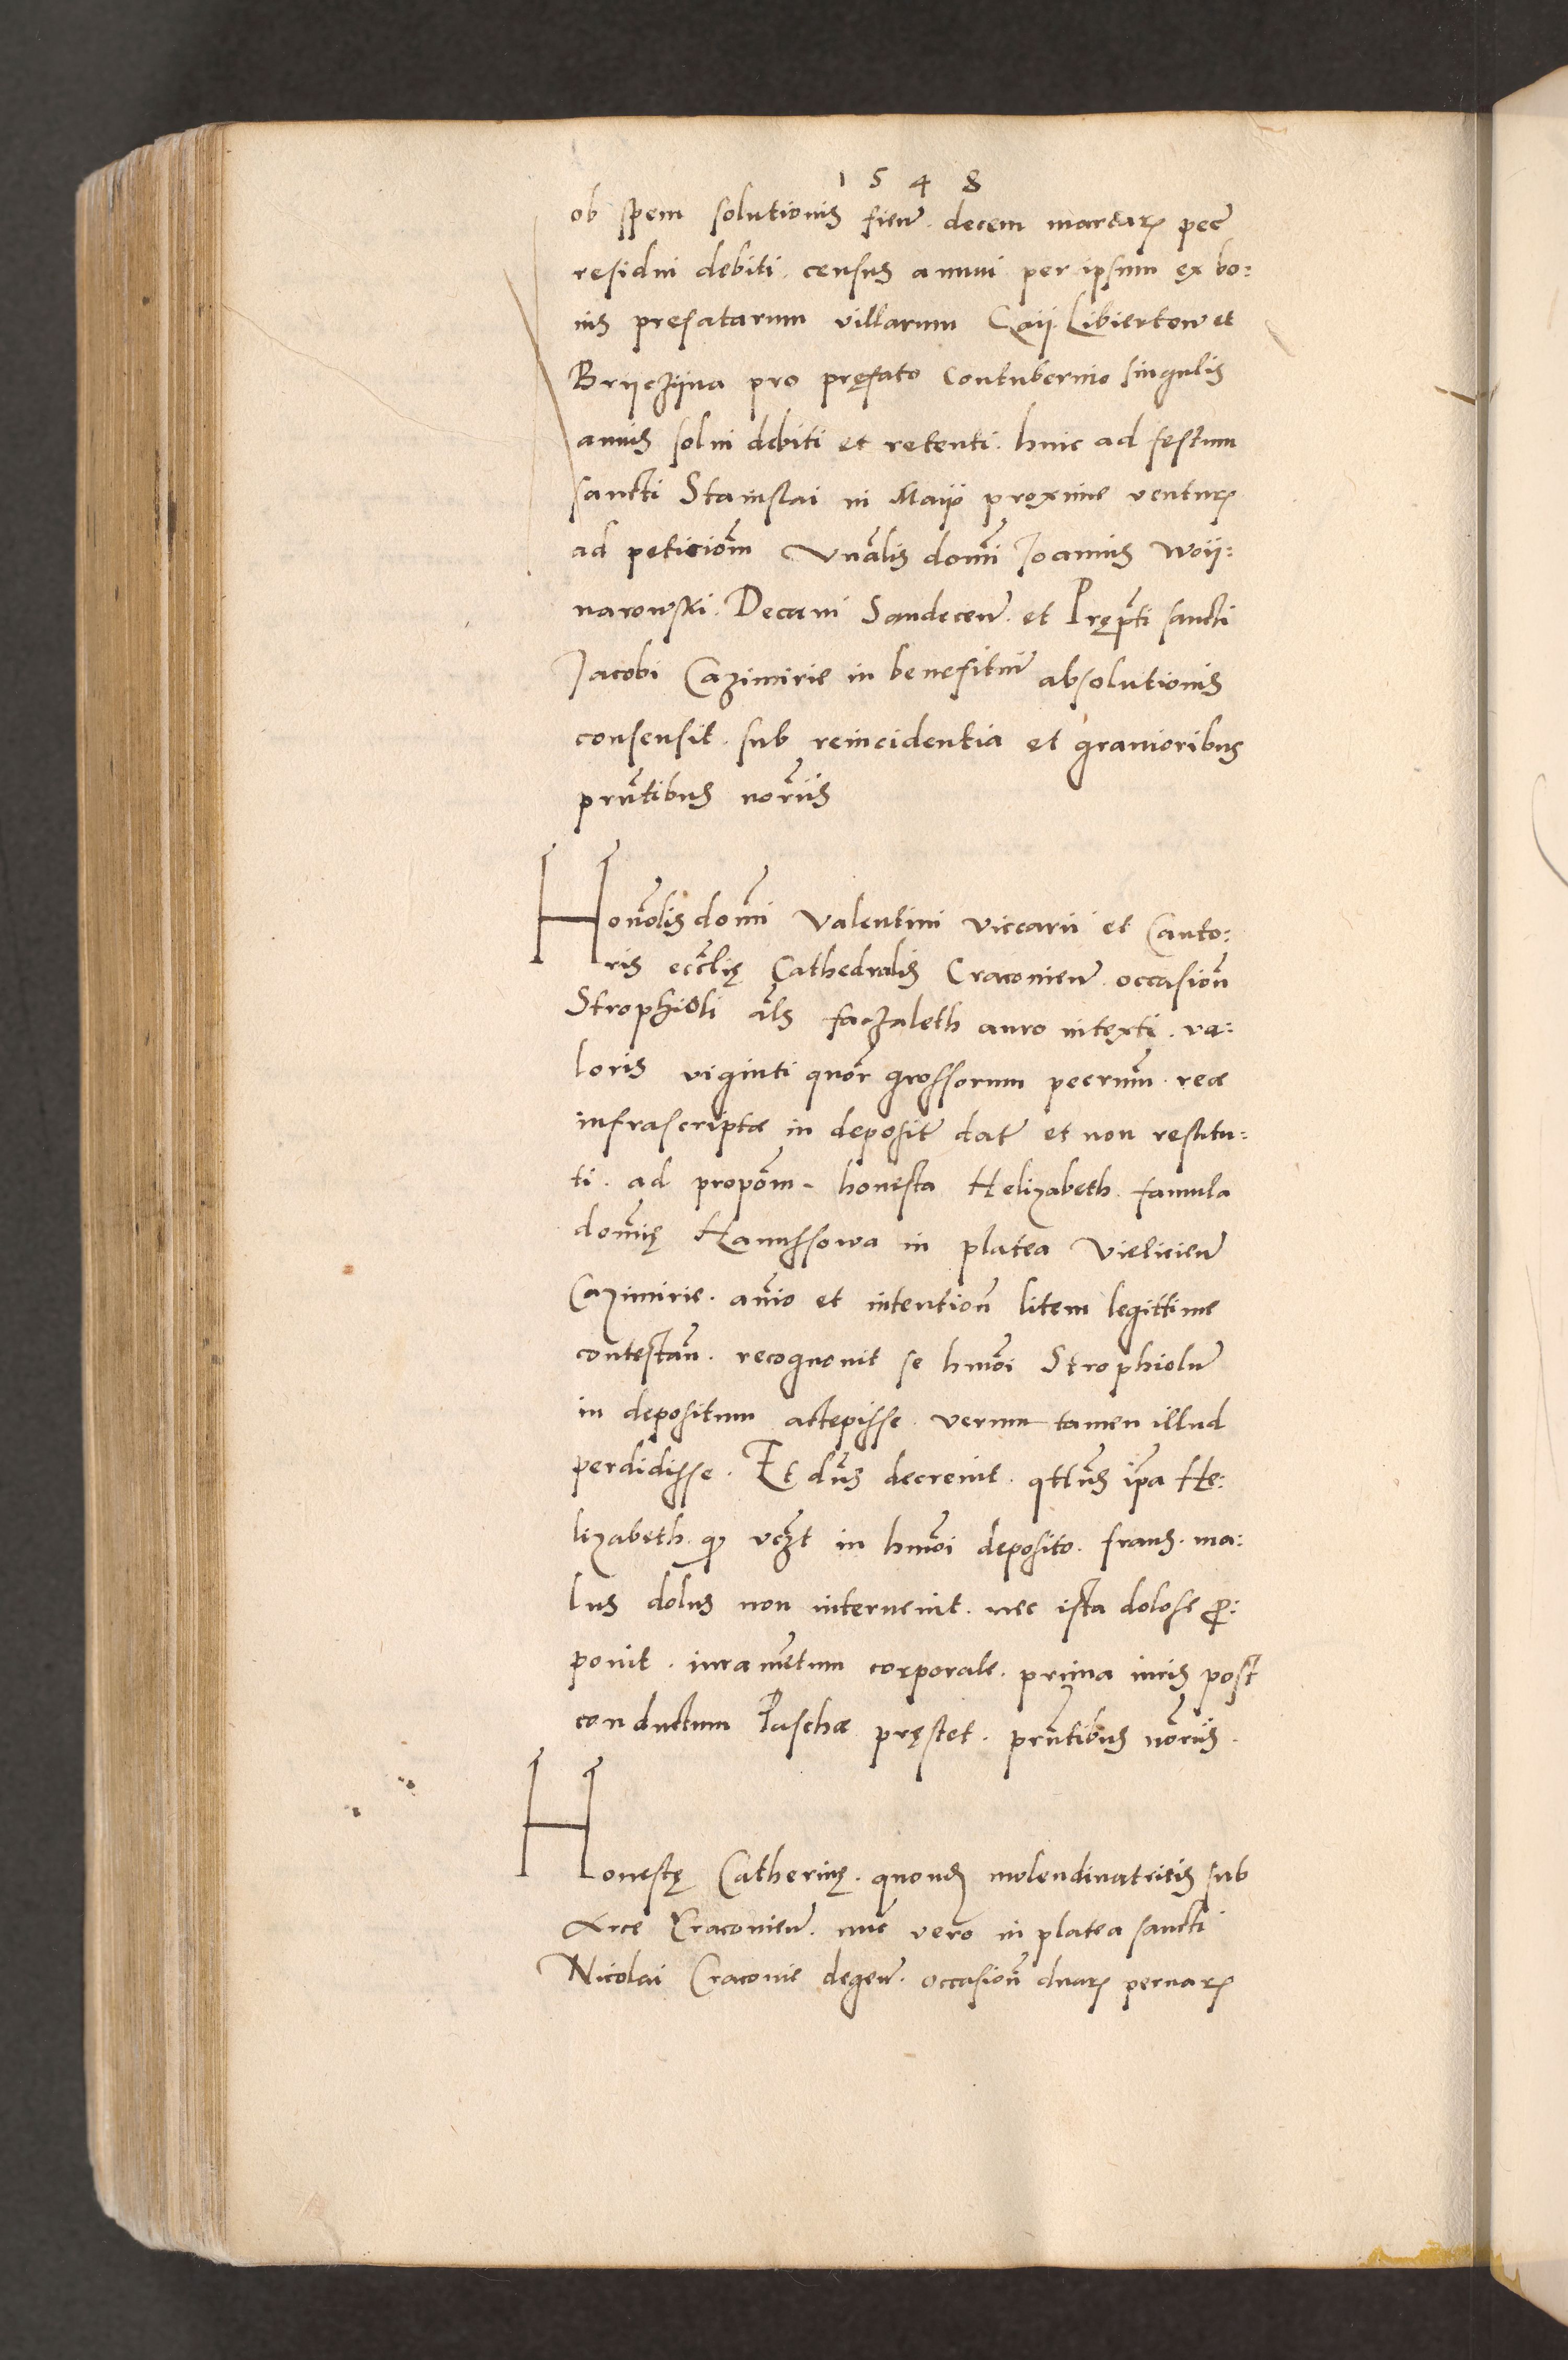 1 5 4 8
ob spem solutionis fien̄. decem marcarꝝ pec̄
residui debiti. census annui per ipsum ex bo:
nis prefatarum villarum Gaÿ. Libiertow et
Brÿczÿna pro pręfato Contubernio singulis
annis solui debiti et retenti. huic ad festum
sancti Stanislai in Maÿ proxime venturꝝ
ad peticiōm Vn̄alis domī Joannis Woÿ:
narowski. Decani Sandecen̄. et Pręp̄ti sancti
Jacobi Cazimirie in benefitiū absolutionis
consensit. sub reincidentia et grauioribus
prn̄tibus nor̄iis
Honōlis domī Valentini viccarii et Canto:
ris eccl̄ię Cathedralis Cracouien̄. occasiōn
Strophioli al̄s faczaleth auro intexti. va:
loris viginti quōr grossorum pecruum̄. reæ
infrascriptæ in deposit̄ dat̄ et non restitu:
ti. ad propōm. honesta Helizabeth. famula
domīę Hanussowa in platea Vielicien̄
Cazimirie. an̄io et intentiōn litem legittime
contestan̄. recognouit se hm̄oi Strophiolū
in depositum accepisse. verum tamen illud
perdidisse. Et dn̄s decreuit. qt̄n̄s ip̄a He:
lizabeth. ꝙ vcz̄t in hm̄oi deposito. fraus. ma:
lus dolus non interuenit. nec ista dolose ꝓ:
ponit. iuramen̄tum corporale. prima iuris post
conductum Paschæ pręstet. prn̄tibus nor̄iis.
Honestę Catherinę. quondꝫ molendinatricis sub
Arce Cracouien̄. nūc vero in platea sancti
Nicolai Cracouie degen̄. occasiōn duarꝝ pernarꝝ